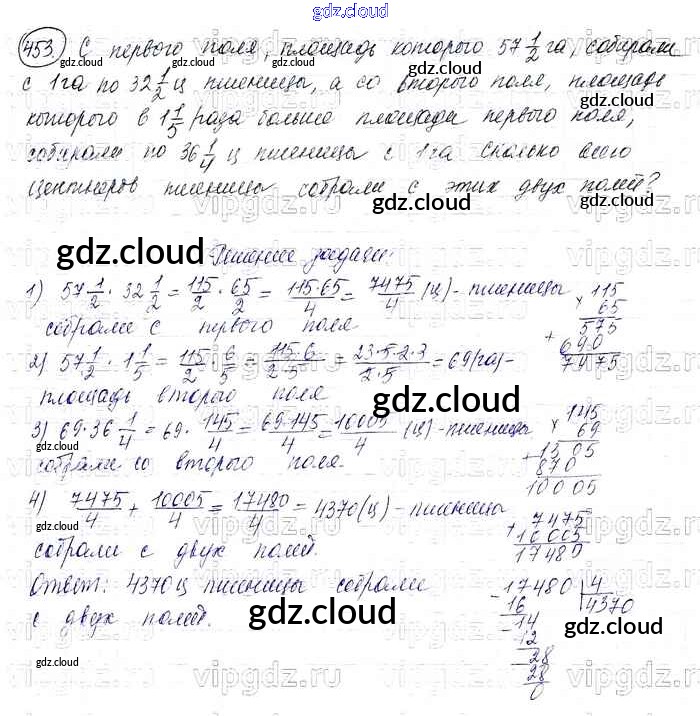 gdz.cloud
453. С первого поля, площадь которого 57 1/2 га, собирали
с 1 га по 32 1/2 ц пшеницы, а со второго поля, площадь
которого в 1 1/5 раза больше площади первого поля,
собирали по 36 1/4 ц пшеницы с 1 га. Сколько всего
центнеров пшеницы собрали с этих двух полей?
Решение задачи:
1) 57 1/2 · 32 1/2 = 115/2 · 65/2 = 115·65/4 = 7475/4 (ц) - пшеницы
собрали с первого поля
× 115
65
575
+ 690
7475
2) 57 1/2 · 1 1/5 = 115/2 · 6/5 = 115·6/2·5 = 23·5·2·3/2·5 = 69 (га) -
площадь второго поля
3) 69·36 1/4 = 69 · 145/4 = 69·145/4 = 10005/4 (ц) - пшеницы
собрали со второго поля.
× 145
69
+ 1305
870
10005
4) 7475/4 + 10005/4 = 17480/4 = 4370 (ц) - пшеницы
собрали с двух полей.
+ 7475
10005
17480
Ответ: 4370 ц пшеницы собрали
с двух полей.
- 17480 | 4
16 4370
- 14
12
- 28
28
0
gdz.cloud
vipgdz.ru